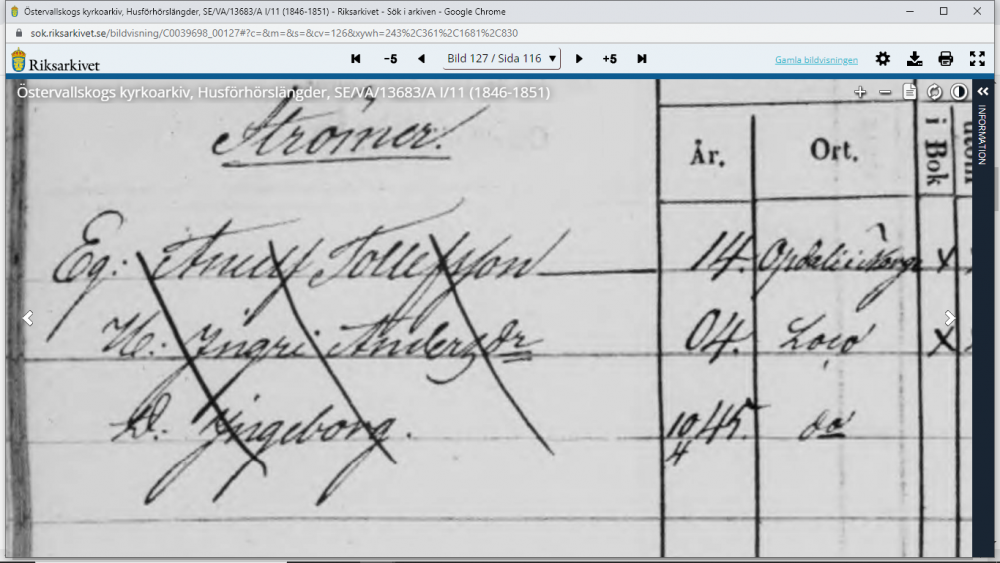 Östervallskogs kyrkoarkiv, Husförhörslängder, SE/VA/13683/A I/11 (1846-1851) - Riksarkivet - Sök i arkiven - Google Chrome
sok.riksarkivet.se/bildvisning/C0039698_00127#?c=&m=&s=&cv=126&xywh=243%2C361%2C1681%2C830
Riksarkivet
-5
Bild 127 / Sida 116
+5
Gamla bildvisningen
Östervallskogs kyrkoarkiv, Husförhörslängder, SE/VA/13683/A I/11 (1846-1851)
INFORMATION
Strömer.
År. Ort. i Bok
Eg: Tollefsson 14. Opdal i Norge x
H: Ingri Andersdr 04. Loco x
D. Ingeborg. 10/4 45. do